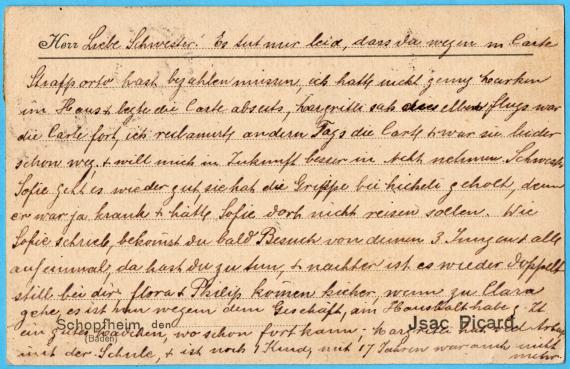 Herr Liebe Schwester! Es tut mir leid, dass du wegen m Carte
Strafporto hast bezahlen müssen, ich hatte nicht genug Marken
im Haus & legte die Carte abseits, Margritli sah dieselbe & flugs war
die Carte fort, ich andern Tags die Carte & war sie leider
schon weg, & will mich in Zukunft besser in Acht nehmen. Schwest.
Sofie geht es wieder gut, sie hat die Grippe bei geholt, denn
er war ja krank & hätte Sofie dort nicht reisen sollen. Wie
Sofie schrieb, bekomst du bald Besuch von deinen 3 Jungen & alle
auf einmal, da hast du zu tun, & nachher ist es wieder doppelt
still bei dir. Flora & Philip können hieher, wenn zu Clara
gehe, es ist nun wegem dem Geschäft, am Haushalt habe z. Zt
ein gutes , wo schon fort kann. Margritli hat viel Arbeit
Schopfheim, den
(Baden)
Jsac Picard.
mit der Schule, & ist noch 1 Kind, mit 17 Jahren war auch nicht
mehr.